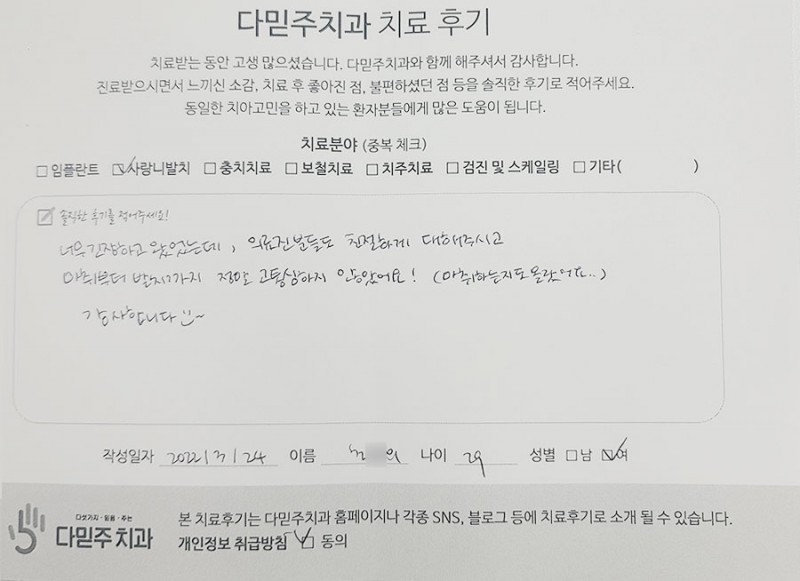 다믿주치과 치료 후기
치료받는 동안 고생 많으셨습니다. 다믿주치과와 함께 해주셔서 감사합니다.
진료받으시면서 느끼신 소감, 치료 후 좋아진 점, 불편하셨던 점 등을 솔직한 후기로 적어주세요.
동일한 치아고민을 하고 있는 환자분들에게 많은 도움이 됩니다.
치료분야 (중복 체크)
□ 임플란트 ☑ 사랑니발치 □ 충치치료 □ 보철치료 □ 치주치료 □ 검진 및 스케일링 □ 기타( )
솔직한 후기를 적어주세요!
너무 긴장하고 왔었는데, 의료진분들도 친절하게 대해주시고
마취부터 발치까지 정말 고통스럽하지 않았어요! (마취하는지도 몰랐어요..)
감사합니다 :)~
작성일자 2022/3/24 이름 나이 29 성별 □남 ☑여
다섯가지·믿음·주는
다믿주치과
본 치료후기는 다믿주치과 홈페이지나 각종 SNS, 블로그 등에 치료후기로 소개 될 수 있습니다.
개인정보 취급방침 ☑ 동의